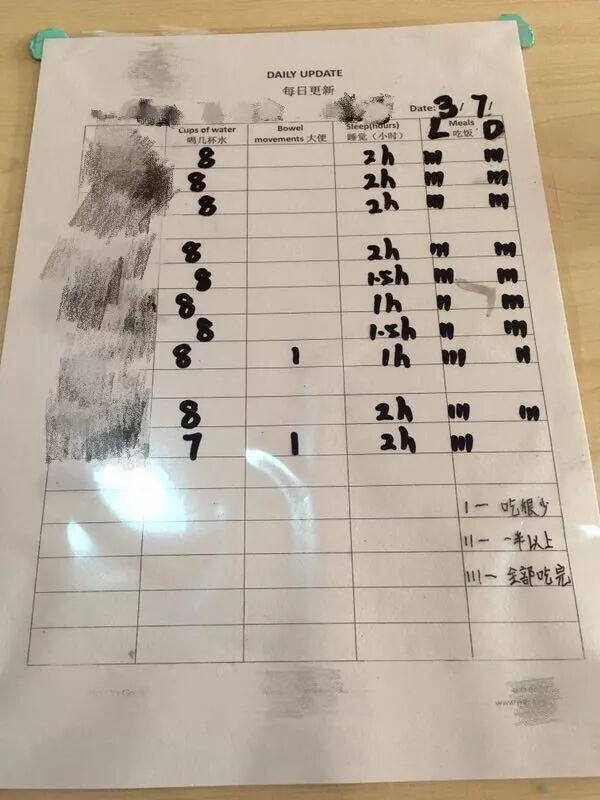 DAILY UPDATE
每日更新
Date: 3/7/
Cups of water Bowel Sleep(hours) L Meals D
喝几杯水 movements 大便 睡觉（小时） 吃饭
8 2h III III
8 2h III III
8 2h III III
8 2h III III
8 1.5h III III
8 1h II III
8 1.5h II III
8 1 1h III II
8 2h III III
7 1 2h III
I — 吃很少
II — 一半以上
III — 全部吃完